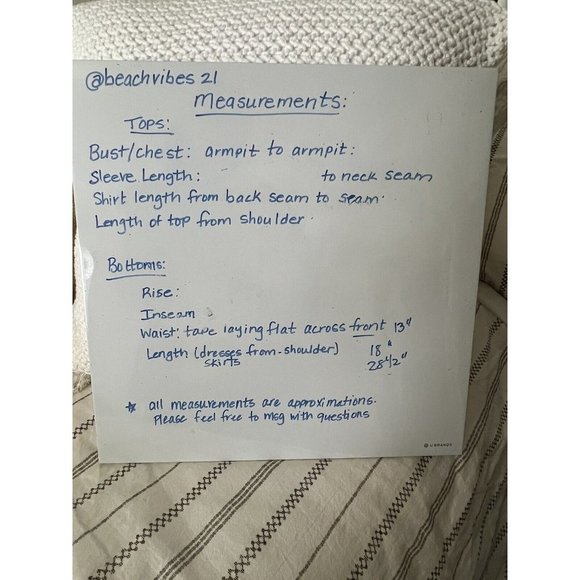 @beachvibes 21
Measurements:
Tops:
Bust/chest: armpit to armpit:
Sleeve Length: to neck seam
Shirt length from back seam to seam.
Length of top from shoulder.
Bottoms:
Rise:
Inseam
Waist: tape laying flat across front 13"
Length (dresses from-shoulder) 18"
skirts 28 1/2"
* all measurements are approximations.
Please feel free to msg with questions
U BRANDS